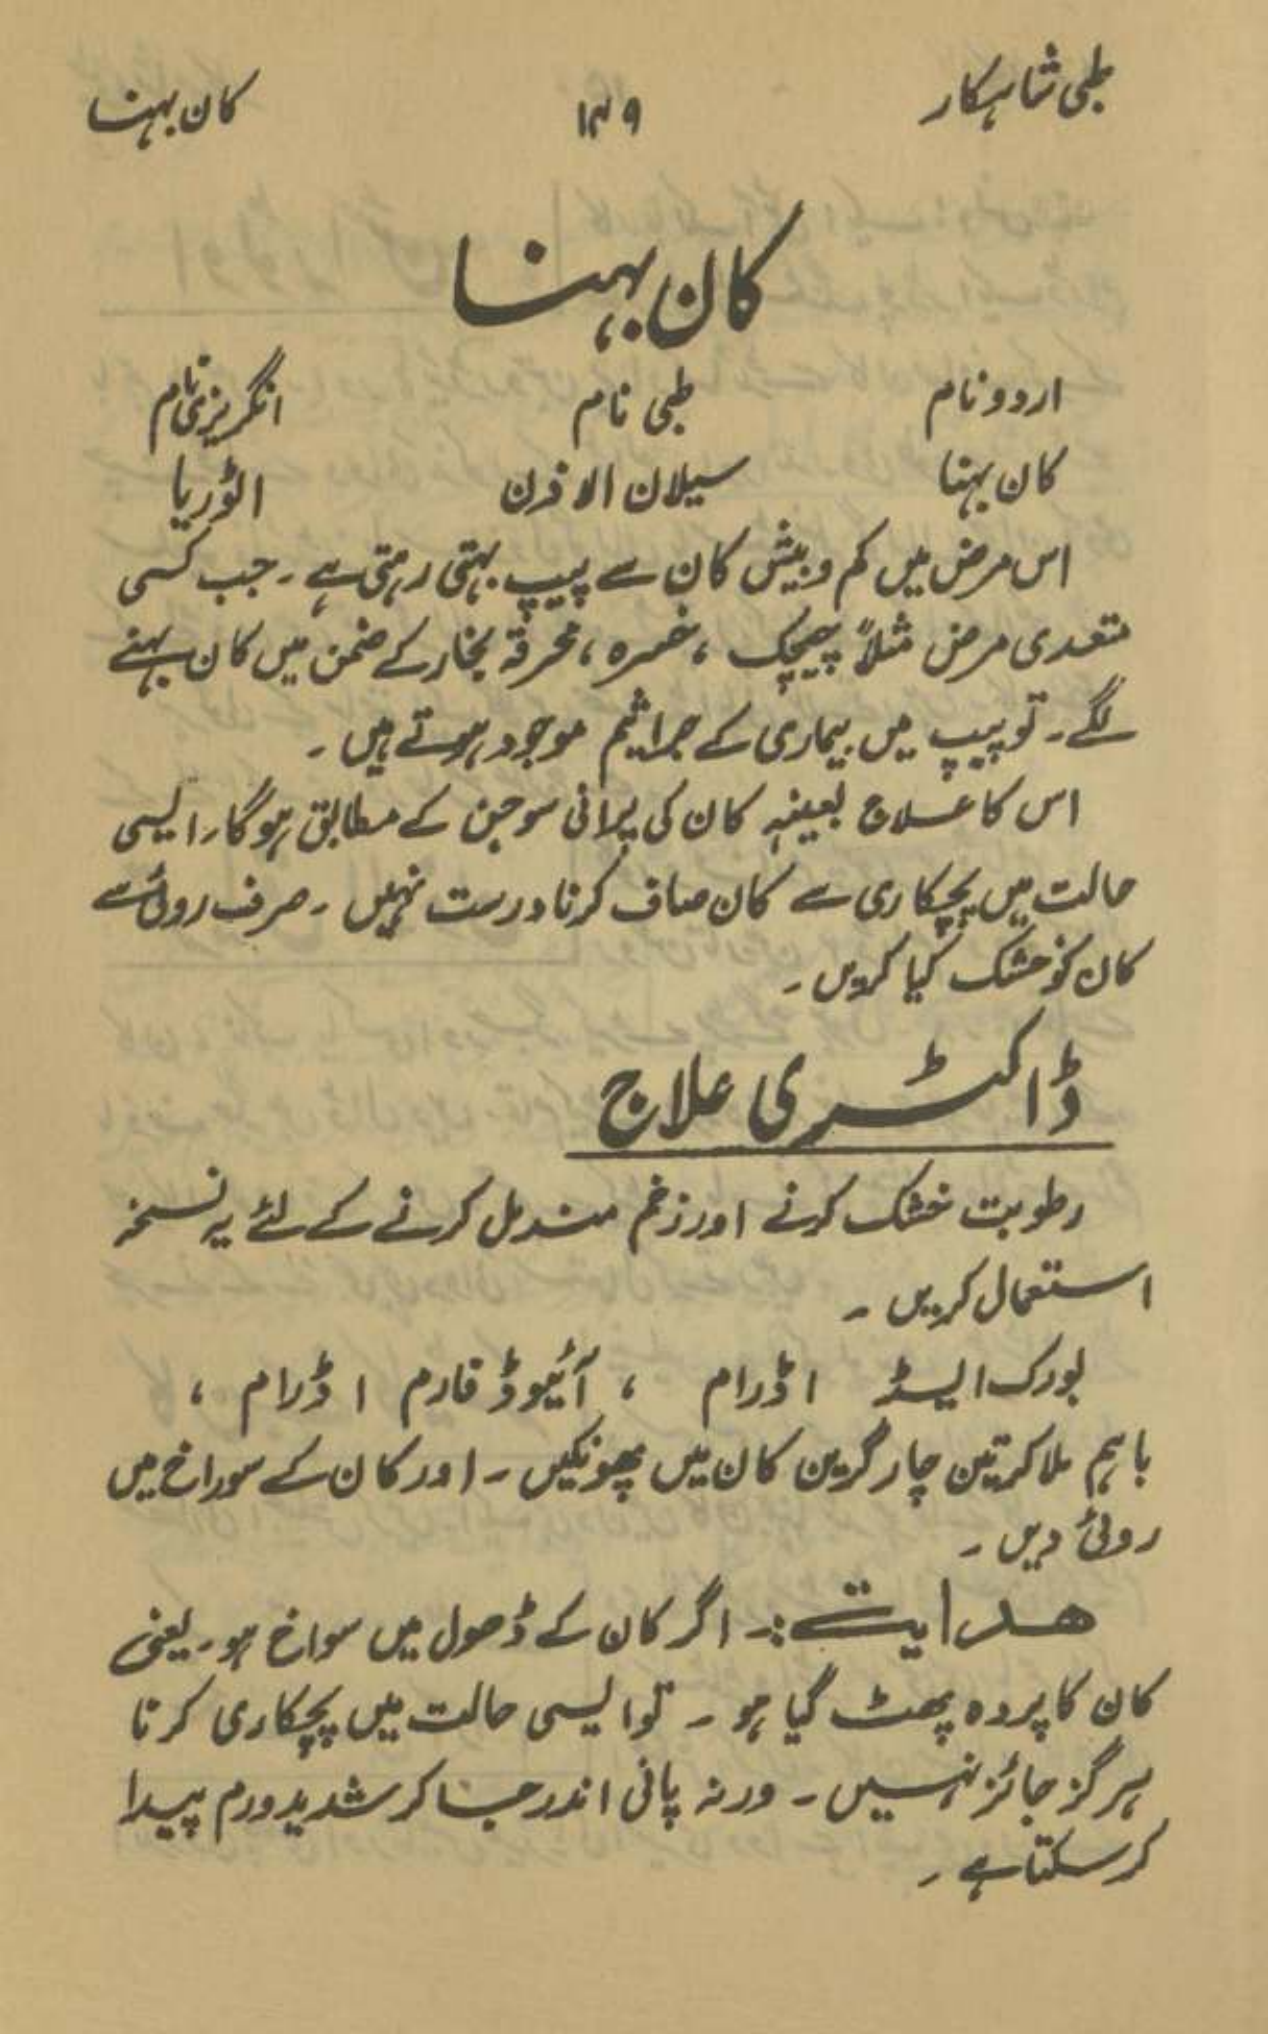 طبی شاہکار ۱۴۹ کان بہنا
کان بہنا
اردو نام طبی نام انگریزی نام
کان بہنا سیلان الاذن اٹوریا
اس مرض میں کم و بیش کان سے پیپ بہتی رہتی ہے۔ جب کسی
متعدی مرض مثلاً چیچک، خسرہ، محرقہ بخار کے ضمن میں کان بہنے
لگے۔ تو پیپ میں بیماری کے جراثیم موجود ہوتے ہیں۔
اس کا علاج بعینہٖ کان کی پرانی سوجن کے مطابق ہوگا۔ ایسی
حالت میں پچکاری سے کان صاف کرنا درست نہیں۔ صرف روئی سے
کان کو خشک کیا کریں۔
ڈاکٹری علاج
رطوبت خشک کرنے اور زخم مندمل کرنے کے لئے یہ نسخہ
استعمال کریں۔
بورک ایسڈ ۱ ڈرام ، آئیوڈوفارم ۱ ڈرام ،
باہم ملا کر تین چار گرین کان میں پھونکیں۔ اور کان کے سوراخ میں
روئی دیں۔
ھدایت:۔ اگر کان کے ڈھول میں سواخ ہو۔ یعنی
کان کا پردہ پھٹ گیا ہو۔ تو ایسی حالت میں پچکاری کرنا
ہرگز جائز نہیں۔ ورنہ پانی اندر جا کر شدید ورم پیدا
کر سکتا ہے۔